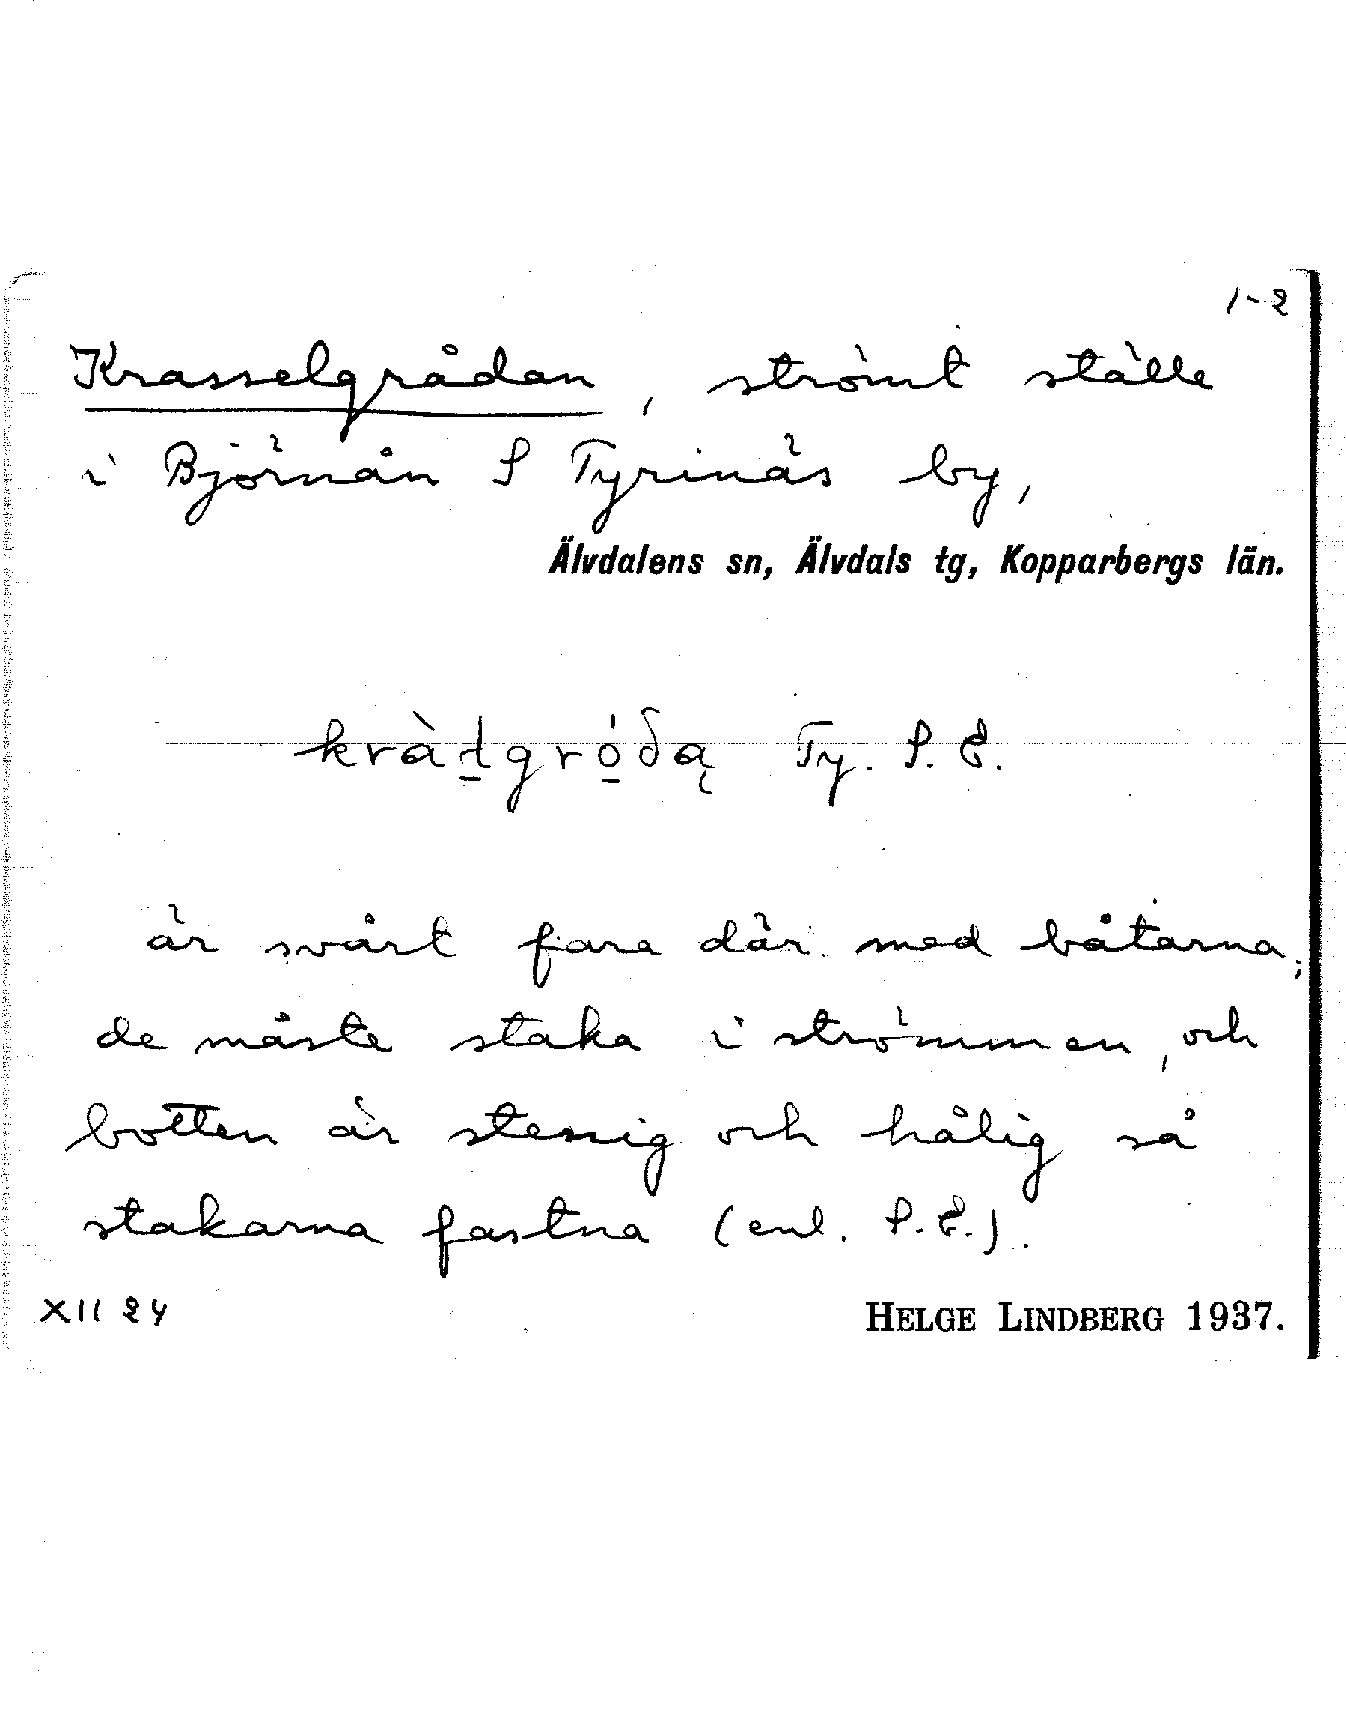 1-2
Krasselgrådan, strömt ställe
i Björnån S Tyrinäs by,
Älvdalens sn, Älvdals tg, Kopparbergs län.
Ty. S. E.
är svårt fara där med båtarna;
de måste staka i strömmen, och
botten är stenig och hålig så
stakarna fastna (enl. S. E.).
XII 24
HELGE LINDBERG 1937.